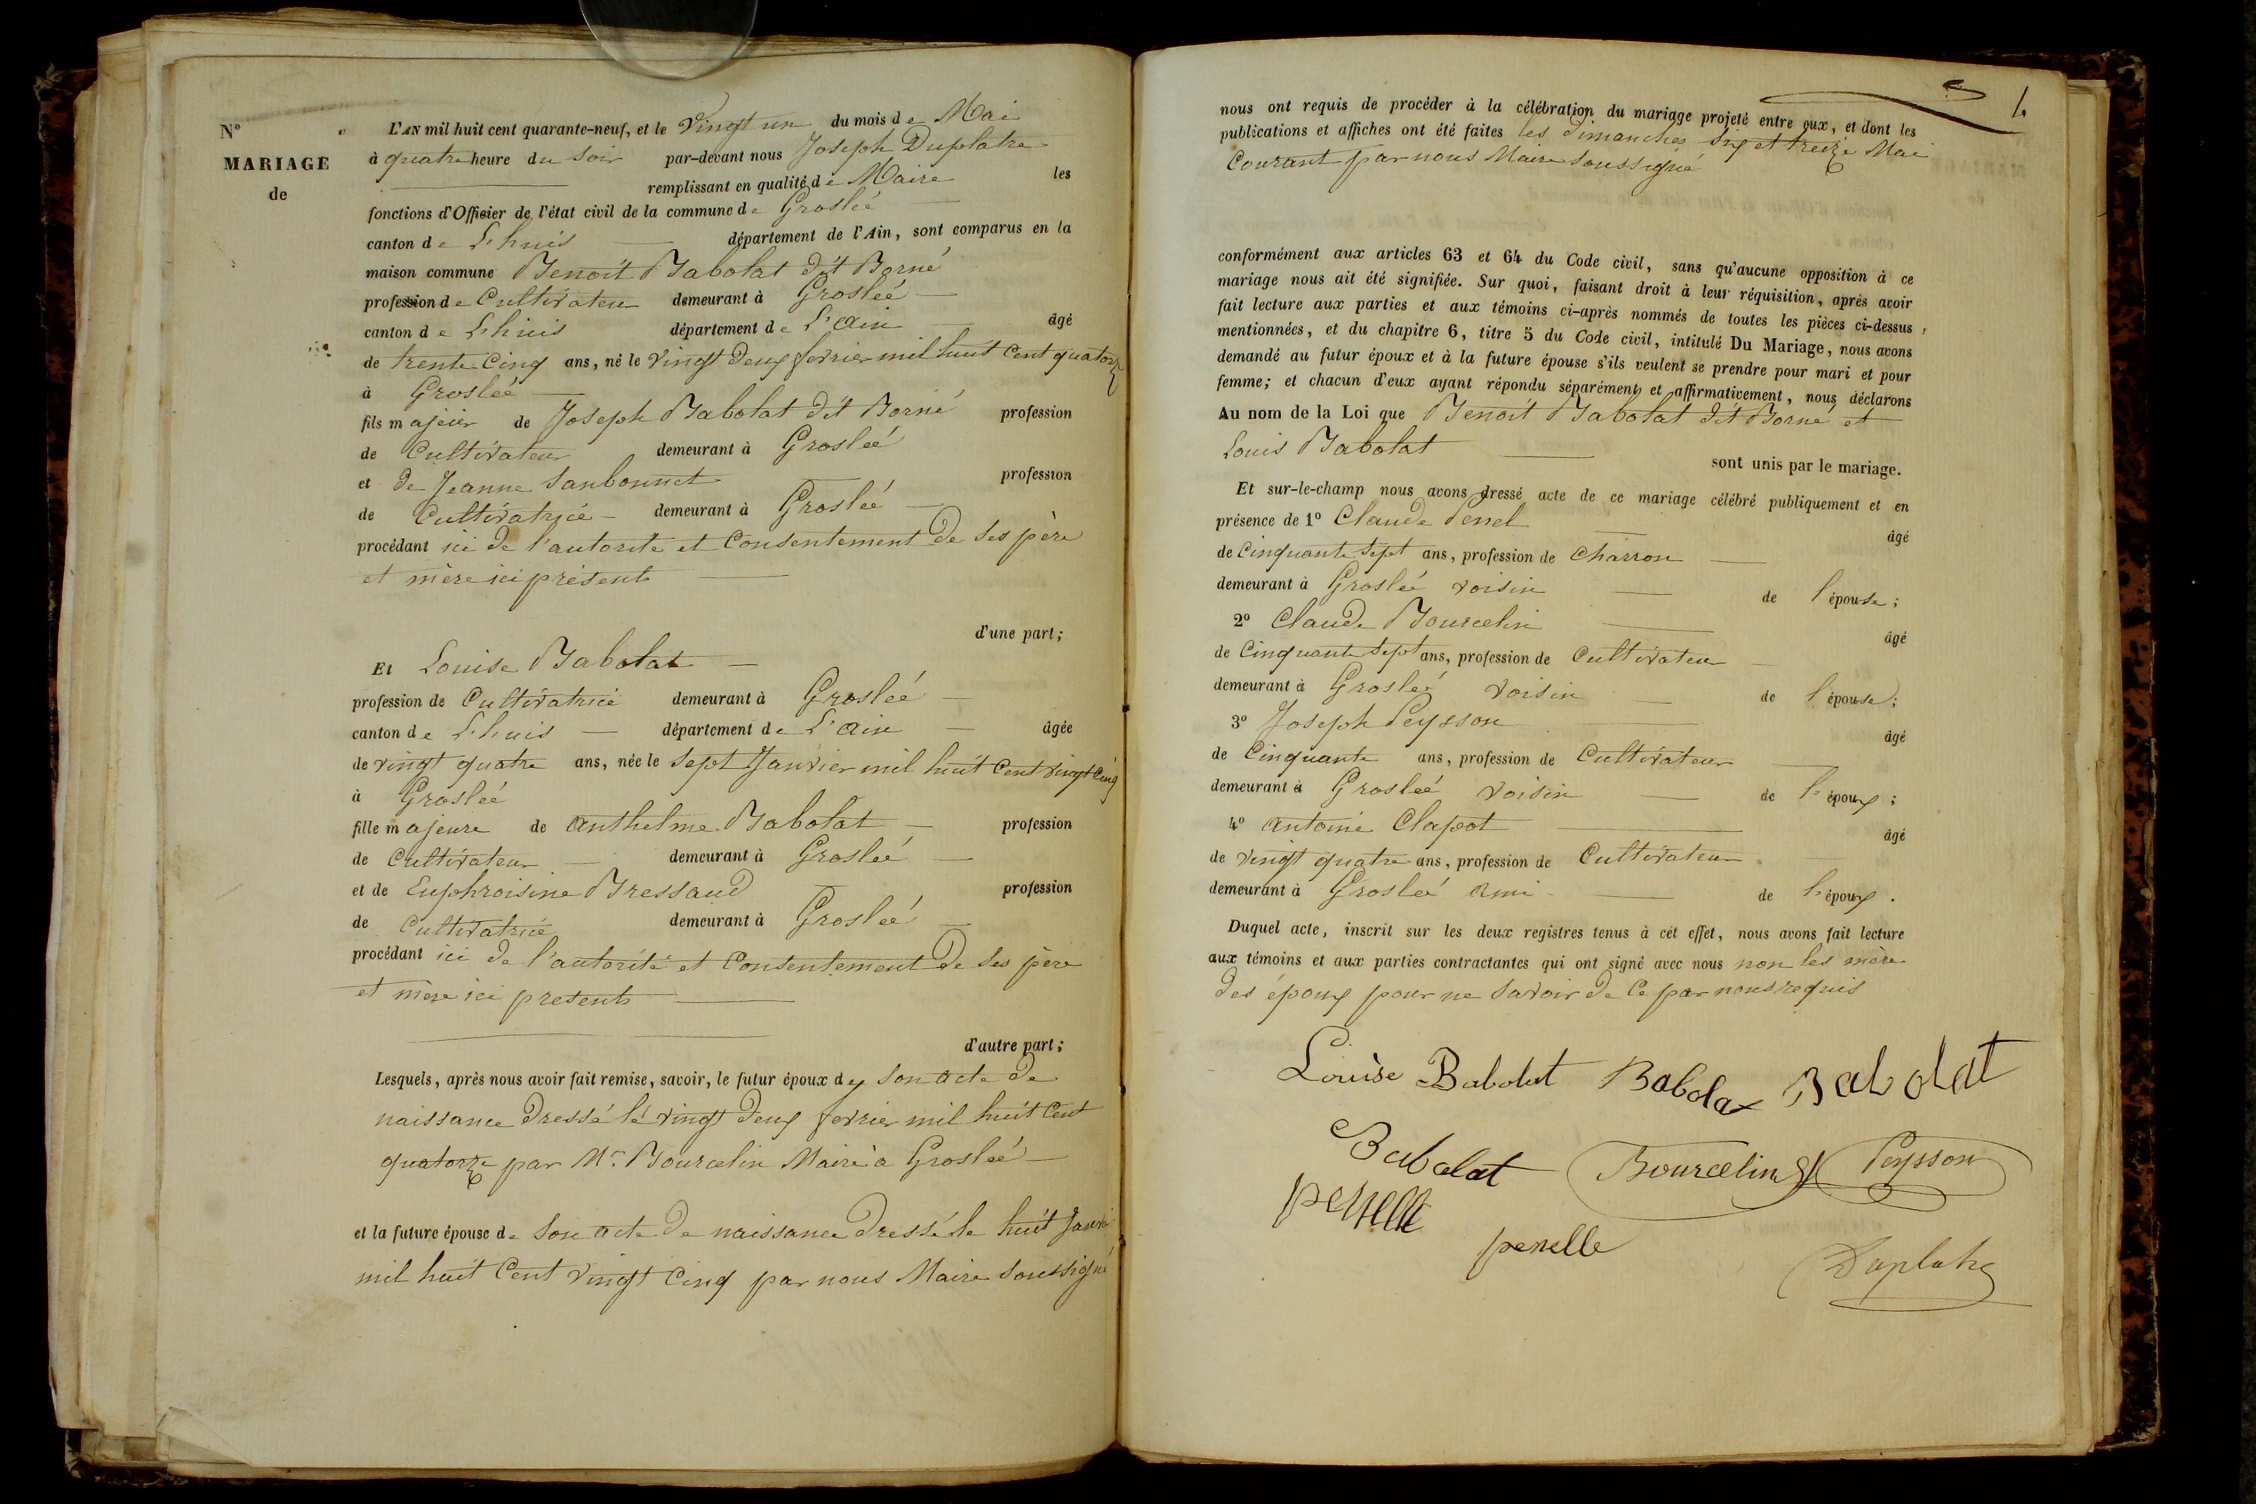 N°
MARIAGE
de
L'AN mil huit cent quarante-neuf, et le Vingt un du mois de Mai
à quatre heure du Soir par-devant nous Joseph Duplatre
remplissant en qualité de Maire les
fonctions d'Officier de l'état civil de la commune de Groslée
canton de L'huis département de l'Ain, sont comparus en la
maison commune Benoit Babolat dit Borné
profession de Cultivateur demeurant à Groslée
canton de L'huis département de L'ain âgé
de trente Cinq ans, né le vingt deux fevrier mil huit Cent quatorze
à Groslée
fils majeur de Joseph Babolat dit Borné profession
de Cultivateur demeurant à Groslée
et de Jeanne Sanbonnet profession
de Cultivatrice demeurant à Groslée
procédant ici de l'autorité et Consentement de ses père
et mère ici présents
d'une part;
Et Louise Babolat
profession de Cultivatrice demeurant à Groslée
canton de L'huis département de L'ain âgée
de vingt quatre ans, née le Sept Janvier mil huit Cent vingt Cinq
à Groslée
fille majeure de Anthelme Babolat profession
de Cultivateur demeurant à Groslée
et de Euphroisine Bressaud profession
de Cultivatrice demeurant à Groslée
procédant ici de l'autorité et Consentement de ses père
et mère ici presents
d'autre part;
Lesquels, après nous avoir fait remise, savoir, le futur époux de son acte de
naissance dressé lé vingt deux fevrier mil huit Cent
quatorze par Mr. Bourcelin Maire à Groslée
et la future épouse de son acte de naissance dressé le huit Janvier
mil huit Cent vingt Cinq par nous Maire soussigné
4
nous ont requis de procéder à la célébration du mariage projeté entre eux, et dont les
publications et affiches ont été faites les dimanches six et treize Mai
Courant par nous Maire soussigné
conformément aux articles 63 et 64 du Code civil, sans qu'aucune opposition à ce
mariage nous ait été signifiée. Sur quoi, faisant droit à leur réquisition, après avoir
fait lecture aux parties et aux témoins ci-après nommés de toutes les pièces ci-dessus
mentionnées, et du chapitre 6, titre 5 du Code civil, intitulé Du Mariage, nous avons
demandé au futur époux et à la future épouse s'ils veulent se prendre pour mari et pour
femme; et chacun d'eux ayant répondu séparément et affirmativement, nous déclarons
Au nom de la Loi que Benoit Babolat dit Borné et
Louis Babolat sont unis par le mariage.
Et sur-le-champ nous avons dressé acte de ce mariage célébré publiquement et en
présence de 1° Claude Penel âgé
de Cinquante sept ans, profession de Charron
demeurant à Groslée voisin de l'épouse;
2° Claude Bourcelin âgé
de Cinquante sept ans, profession de Cultivateur
demeurant à Groslée voisin de l'épouse;
3° Joseph Peysson âgé
de Cinquante ans, profession de Cultivateur
demeurant à Groslée voisin de l'époux;
4° Antoine Clapot âgé
de vingt quatre ans, profession de Cultivateur
demeurant à Groslée ami de l'époux.
Duquel acte, inscrit sur les deux registres tenus à cét effet, nous avons fait lecture
aux témoins et aux parties contractantes qui ont signé avec nous non les mère
des époux pour ne savoir de ce par nous requis
Louise Babolat Babolat Babolat
Babolat Bourcelin Peysson
penelle
penelle
Duplatre